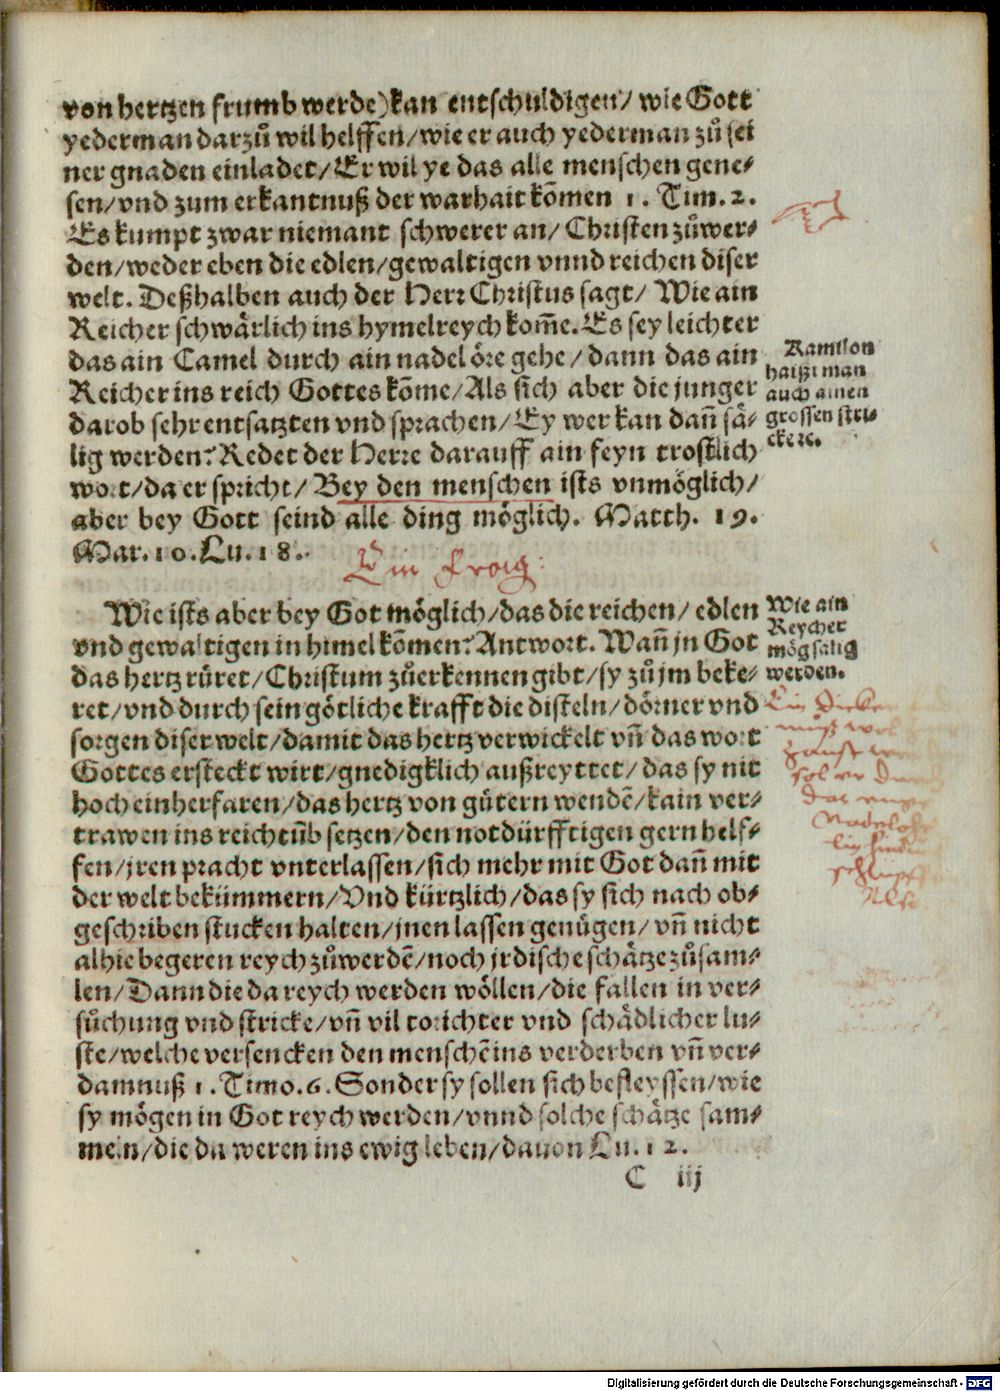 von hertzen frumb werde)kan entschuldigen/ wie Gott
yederman darzů wil helffen/wie er auch yederman zů sei
ner gnaden einladet/Er wil ye das alle menschen gene⸗
sen/vnd zum erkantnuß der warhait kōmen 1. Tim. 2.
Es kumpt zwar niemant schwerer an/ Christen zůwer⸗
den/weder eben die edlen/gewaltigen vnnd reichen diser
welt. Deßhalben auch der Herr Christus sagt/ Wie ain
Reicher schwärlich ins hymelreych kom̄e. Es sey leichter
das ain Camel durch ain nadel öre gehe/ dann das ain
Reicher ins reich Gottes kōme/Als sich aber die junger
darob sehr entsatzten vnd sprachen/Ey wer kan dan̄ sä⸗
lig werden? Redet der Herre darauff ain feyn trostlich
wort/da er spricht/ Bey den menschen ists vnmöglich/
aber bey Gott seind alle ding möglich. Matth. 19.
Mar. 10. Lu. 18.
Kamilon
haißt man
auch ainen
grossen stri⸗
cke ⁊c.
Ein Frag:
Wie ists aber bey Got möglich/das die reichen/ edlen
vnd gewaltigen in himel kōmen? Antwort. Wan̄ jn Got
das hertz rüret/Christum zůerkennen gibt/sy zů jm beke⸗
ret/vnd durch sein götliche krafft die disteln/dörner vnd
sorgen diser welt/damit das hertz verwickelt vn̄ das wort
Gottes ersteckt wirt/gnedigklich außreyttet/das sy nit
hoch einherfaren/das hertz von gütern wendē/kain ver⸗
trawen ins reichtūb setzen/den notdürfftigen gern helf⸗
fen/jren pracht vnterlassen/sich mehr mit Got dan̄ mit
der welt bekümmern/Vnd kürtzlich/das sy sich nach ob⸗
geschriben stucken halten/jnen lassen genügen/ vn̄ nicht
alhie begeren reych zůwerdē/noch jrdische schätze zůsam⸗
len/Dann die da reych werden wöllen/die fallen in ver⸗
sůchung vnd stricke/vn̄ vil torichter vnd schädlicher lu⸗
ste/welche versencken den menschē ins verderben vn̄ ver⸗
damnuß 1. Timo. 6. Sonder sy sollen sich befleyssen/wie
sy mögen in Got reych werden/vnnd solche schätze sam⸗
meln/die da weren ins ewig leben/dauon Lu. 12.
Wie ain
Reycher
mög sälig
werden.
Ein
muß wol
sol er
Nadelöhr
schlupf
C iij
Digitalisierung gefördert durch die Deutsche Forschungsgemeinschaft - DFG